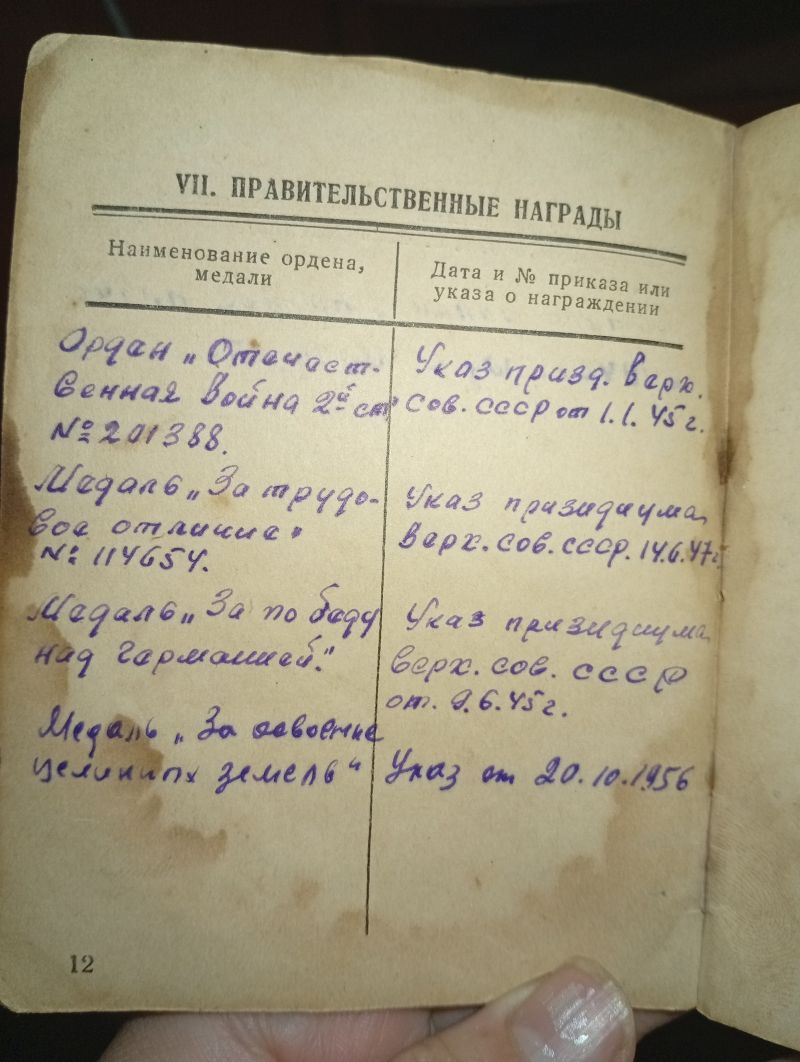 VII. ПРАВИТЕЛЬСТВЕННЫЕ НАГРАДЫ
Наименование ордена,
медали
Дата и № приказа или
указа о награждении
Ордан „Отечаст-
венная война 2й ст"
№ 201388.
Указ призд. Верх.
Сов. СССР от 1.1.45 г.
Медаль „За трудо-
вое отличие"
№ 114654.
Указ призидиума
Верх. Сов. СССР. 14.6.47 г.
Медаль „За победу
над Германией."
Указ призидиума
Верх. Сов. СССР
от. 9.6.45 г.
Медаль „За освоение
целинных земель"
Указ от 20.10.1956
12